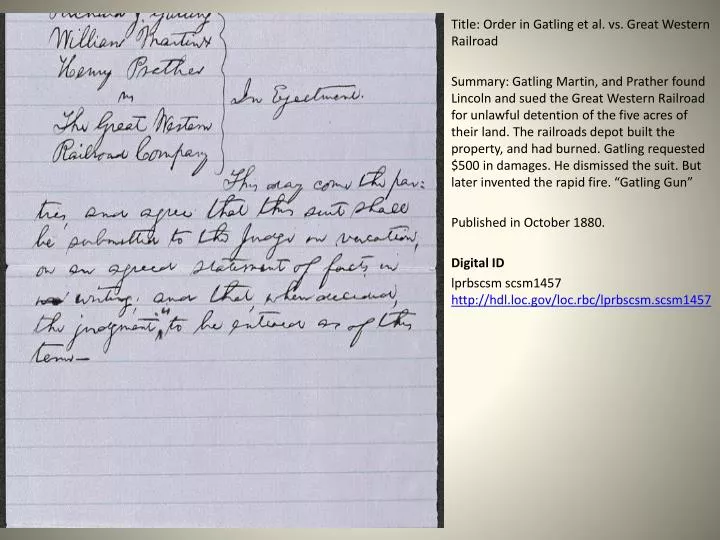 Richard J. Gatling
William Martin &
Henry Prather
vs
The Great Western
Railroad Company
In Ejectment.
This day come the par:
ties, and agree that this suit shall
be submitted to the Judge in vacation,
on an agreed statement of facts in
writing; and that, when decided,
the judgment is to be entered as of this
term—
Title: Order in Gatling et al. vs. Great Western
Railroad
Summary: Gatling Martin, and Prather found
Lincoln and sued the Great Western Railroad
for unlawful detention of the five acres of
their land. The railroads depot built the
property, and had burned. Gatling requested
$500 in damages. He dismissed the suit. But
later invented the rapid fire. “Gatling Gun”
Published in October 1880.
Digital ID
lprbscsm scsm1457
http://hdl.loc.gov/loc.rbc/lprbscsm.scsm1457